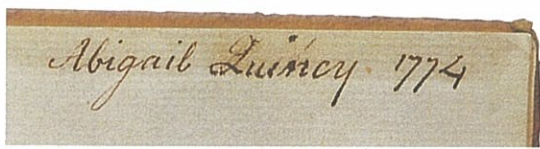 Abigail Quincy 1774